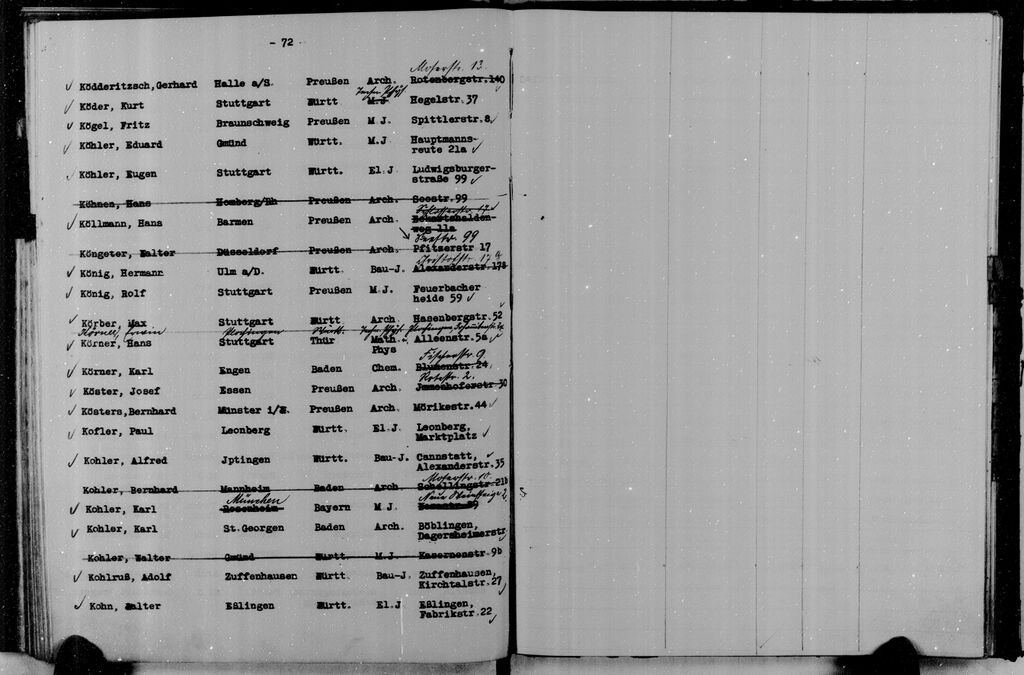 - 72 -
Moserstr. 13.
Ködderitzsch, Gerhard Halle a/S. Preußen Arch. Rotenbergstr. 140
Köder, Kurt Stuttgart Württ M.J Hegelstr. 37
Kögel, Fritz Braunschweig Preußen M J. Spittlerstr. 8
Köhler, Eduard Gmünd Württ. M.J Hauptmanns-
reute 21a
Köhler, Eugen Stuttgart Württ. El.J Ludwigsburger-
straße 99
Köhnen, Hans Homberg/Rh Preußen Arch. Seestr. 99
Schlosserstr. 17
Köllmann, Hans Barmen Preußen Arch
weg 11a
Seestr. 99
Köngeter, Walter Düsseldorf Preußen Arch. Pfitzerstr 17
Christofstr. 17
König, Hermann Ulm a/D. Württ Bau-J. Alexanderstr. 178
König, Rolf Stuttgart Preußen M.J. Feuerbacher
heide 59
Körber, Max Stuttgart Württ Arch Hasenbergstr. 52
Körner, Erwin Württ.
Körner, Hans Stuttgart Thür Math u. Alleenstr. 5a
Phys
Fischerstr. 9
Körner, Karl Engen Baden Chem. Blumenstr. 24
Rotestr. 2.
Köster, Josef Essen Preußen Arch. Immenhoferstr 30
Kösters, Bernhard Münster i/W. Preußen Arch Mörikestr. 44
Kofler, Paul Leonberg Württ. El.J Leonberg,
Marktplatz
Kohler, Alfred Jptingen Württ. Bau-J. Cannstatt,
Alexanderstr. 35
Moserstr. 10
Kohler, Bernhard Mannheim Baden Arch Schellingstr. 21b
München Neue Weinsteige 2
Kohler, Karl Rosenheim Bayern M J.
Kohler, Karl St. Georgen Baden Arch. Böblingen,
Dagersheimerstr
Kohler, Walter Gmünd Württ. M.J Kasernenstr. 9b
Kohlruß, Adolf Zuffenhausen Württ. Bau-J. Zuffenhausen,
Kirchtalstr. 27
Kohn, Walter Eßlingen Württ. El.J Eßlingen,
Fabrikstr. 22